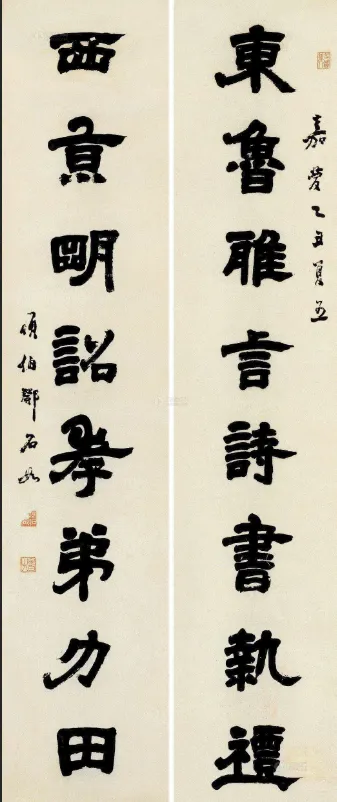 嘉慶乙丑夏五
東魯雅言詩書執禮
西京明詔孝弟力田
頑伯鄧石如